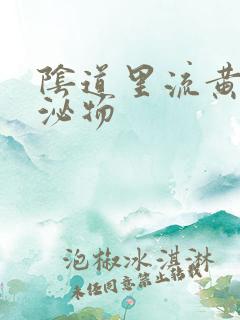 陰道里流黄
泌物
泡椒冰淇淋
未经同意禁止转载